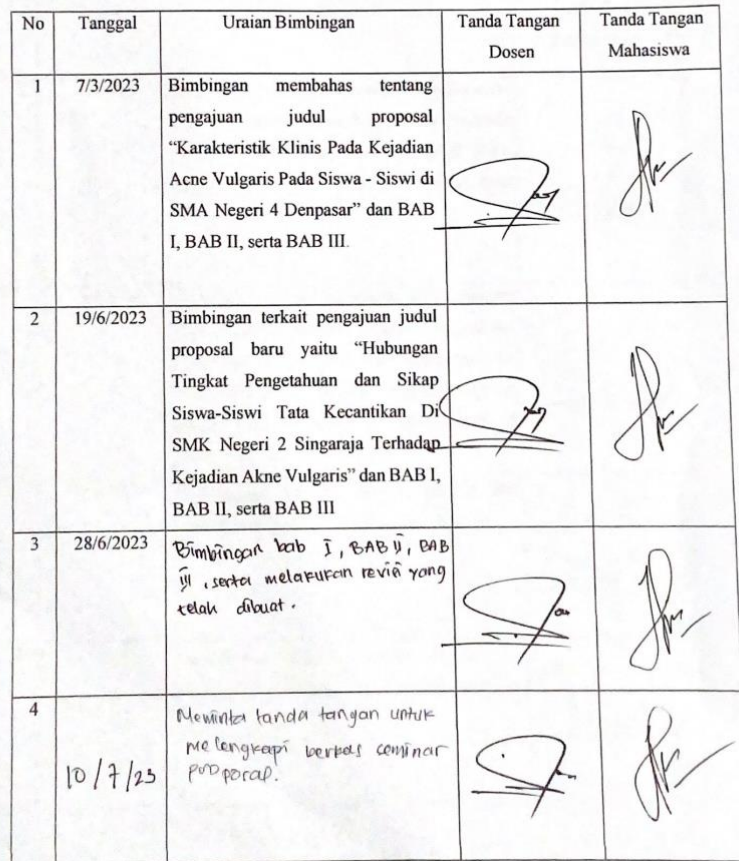 No Tanggal Uraian Bimbingan Tanda Tangan Tanda Tangan
Dosen Mahasiswa
1 7/3/2023 Bimbingan membahas tentang
pengajuan judul proposal
“Karakteristik Klinis Pada Kejadian
Acne Vulgaris Pada Siswa - Siswi di
SMA Negeri 4 Denpasar” dan BAB
I, BAB II, serta BAB III.
2 19/6/2023 Bimbingan terkait pengajuan judul
proposal baru yaitu “Hubungan
Tingkat Pengetahuan dan Sikap
Siswa-Siswi Tata Kecantikan Di
SMK Negeri 2 Singaraja Terhadap
Kejadian Akne Vulgaris” dan BAB I,
BAB II, serta BAB III
3 28/6/2023 Bimbingan bab I, BAB II, BAB
III, serta melakukan yang
telah dibuat.
4 Meminta tanda tangan untuk
melengkapi berkas
10/7/23